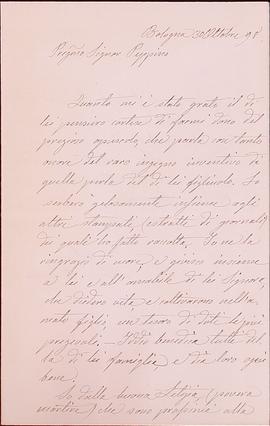 Bologna 30 Ottobre 98
Pregmo Signor Peppino
Quanto mi è stato grato il di
lei pensiero cortese di farmi dono del
prezioso opuscolo, che parla con tanto
onore del raro ingegno inventivo di
quella perla del di lei figliuolo. Io
serberò gelosamente insieme agli
altri stampati, (estratti di giornali)
dei quali ho fatto raccolta. Io ne la
ringrazio di cuore, e gioisco insieme
a lei e all' amabile di lei Signora,
che diedero vita, e coltivarono nell' a-
mato figlio, un tesoro di doti
pregevoli. — Iddio benedica tutta del-
la di lei famiglia, e dia loro ogni
bene.
So dalla buona Letizia, (povera
martire) che sono prossimi alla